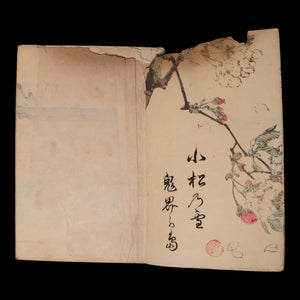 小松乃雪
鬼界が島